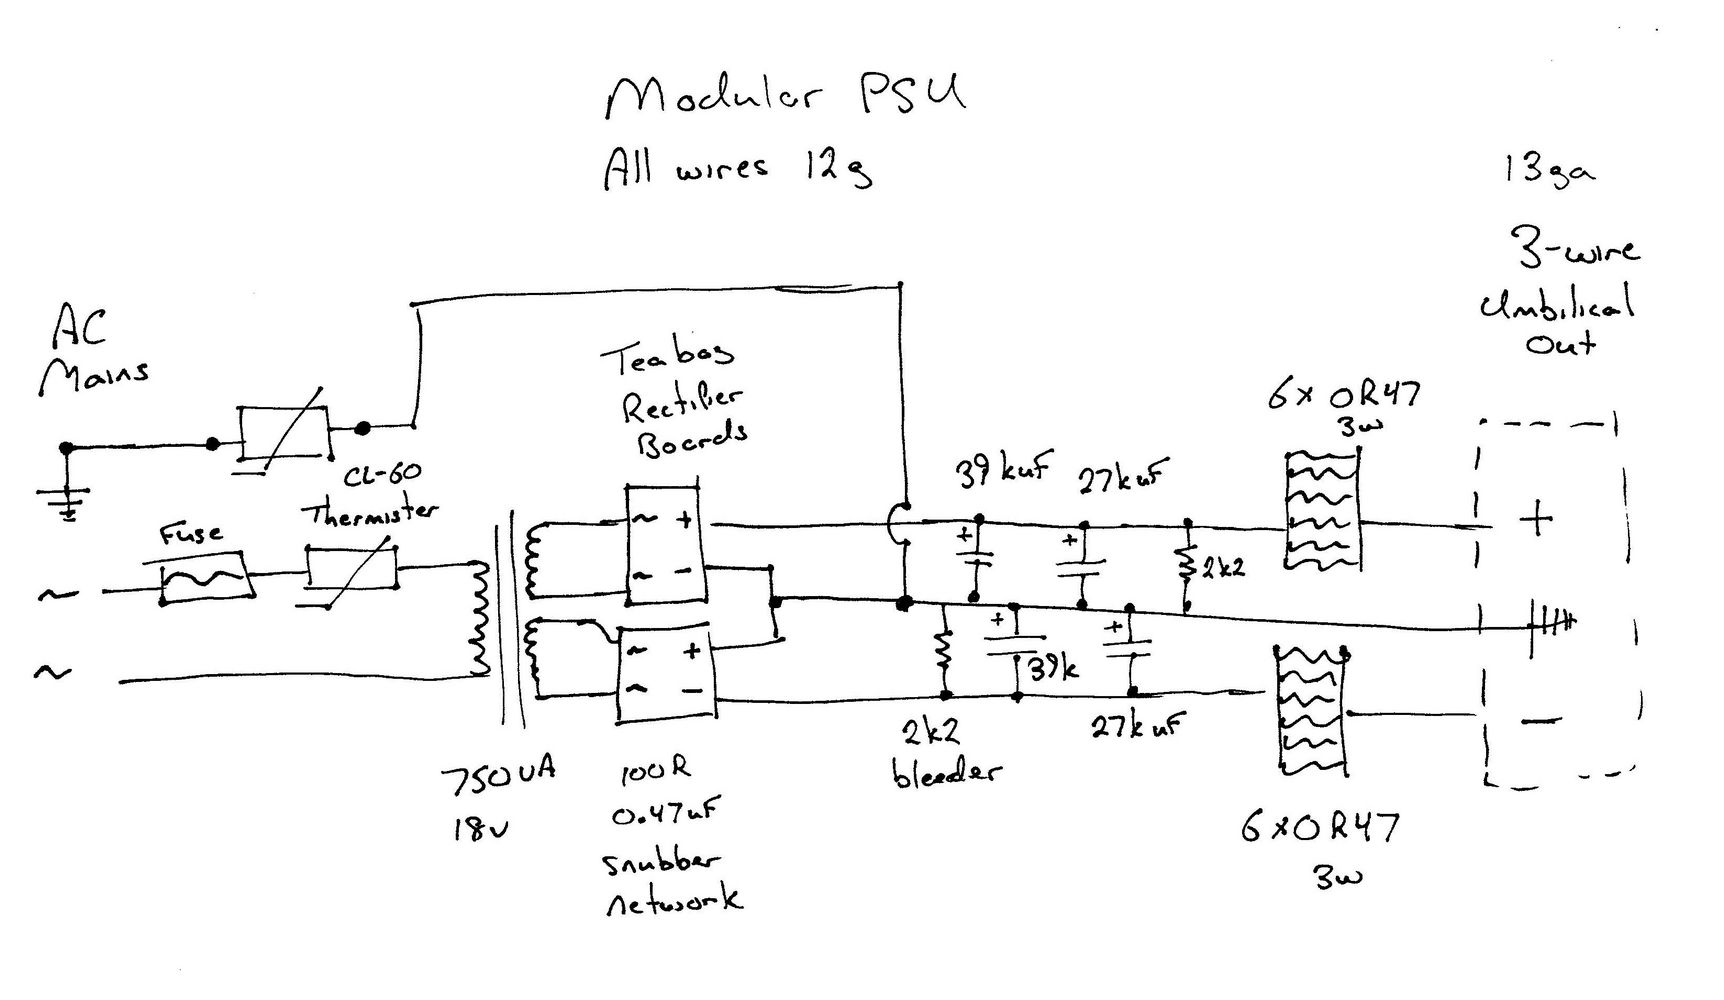 Modular PSU
All wires 12g
13ga
3-wire
Umbilical
Out
AC
Mains
Teabag
Rectifier
Boards
6x 0R47
3w
CL-60
Thermister
Fuse
39kuF
27kuF
~ +
~ -
+
+
2k2
+
~
~
~ +
~ -
+
+
39k
-
2k2
bleeder
27kuF
750VA
18v
100R
0.47uF
snubber
network
6x0R47
3w